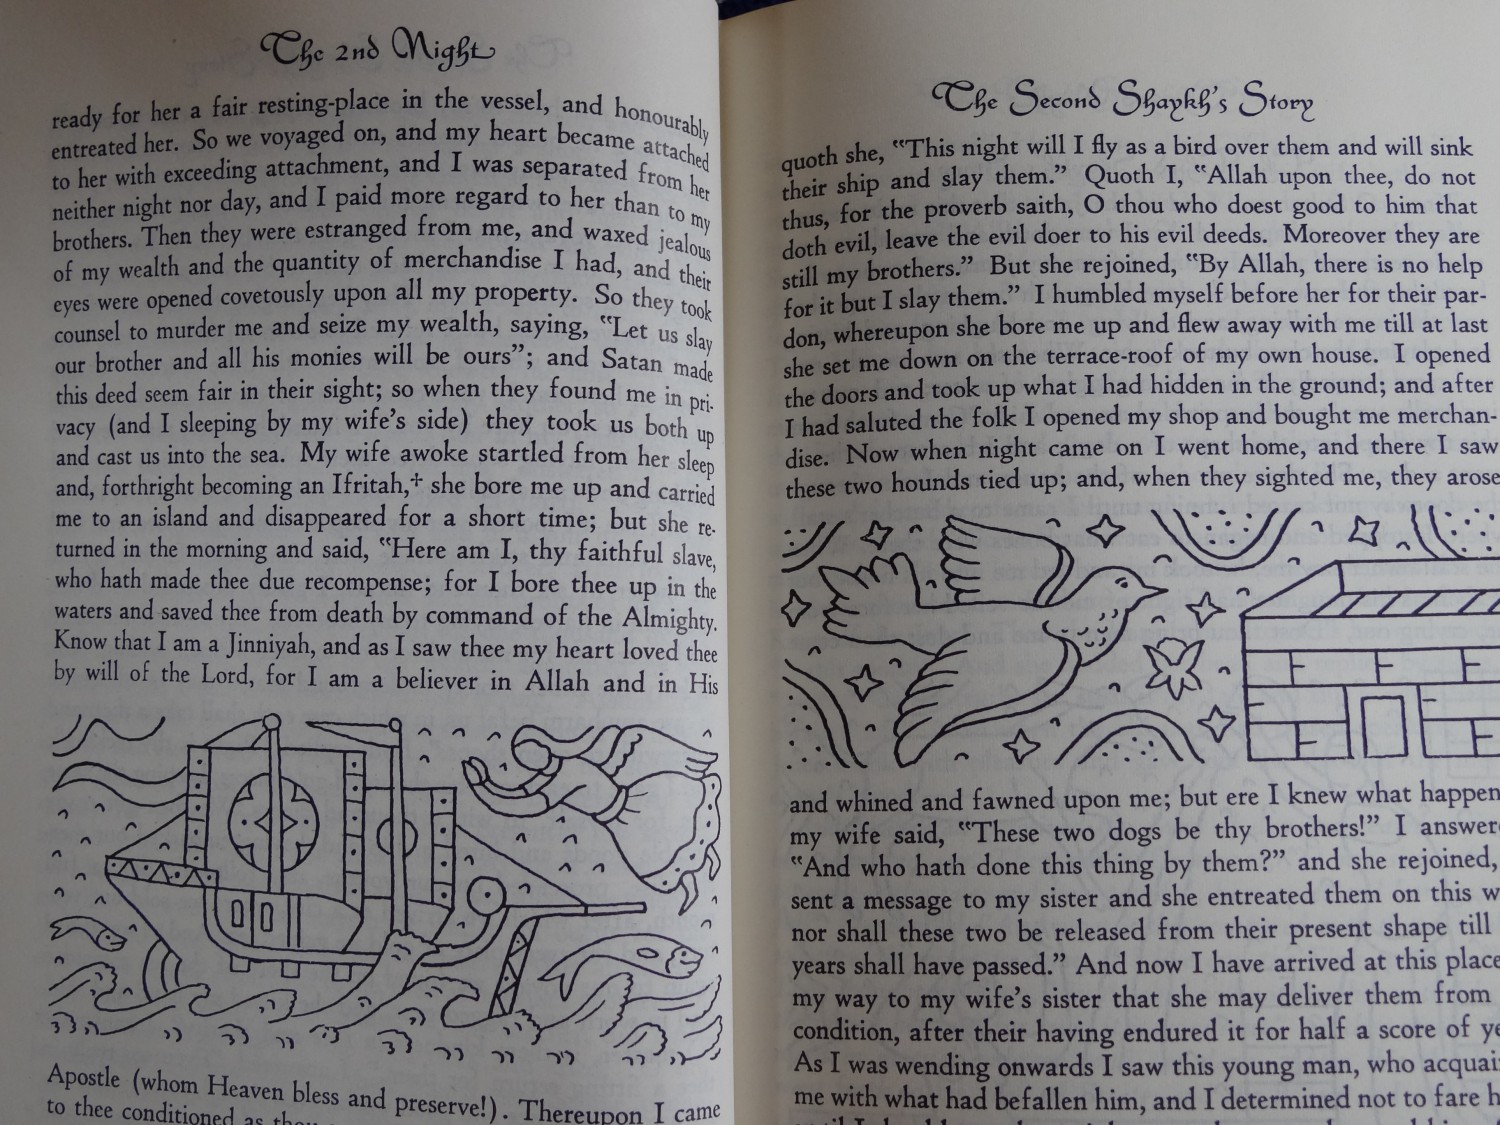 The 2nd Night
ready for her a fair resting-place in the vessel, and honourably
entreated her. So we voyaged on, and my heart became attached
to her with exceeding attachment, and I was separated from her
neither night nor day, and I paid more regard to her than to my
brothers. Then they were estranged from me, and waxed jealous
of my wealth and the quantity of merchandise I had, and their
eyes were opened covetously upon all my property. So they took
counsel to murder me and seize my wealth, saying, "Let us slay
our brother and all his monies will be ours"; and Satan made
this deed seem fair in their sight; so when they found me in pri-
vacy (and I sleeping by my wife's side) they took us both up
and cast us into the sea. My wife awoke startled from her sleep
and, forthright becoming an Ifritah,+ she bore me up and carried
me to an island and disappeared for a short time; but she re-
turned in the morning and said, "Here am I, thy faithful slave,
who hath made thee due recompense; for I bore thee up in the
waters and saved thee from death by command of the Almighty.
Know that I am a Jinniyah, and as I saw thee my heart loved thee
by will of the Lord, for I am a believer in Allah and in His
Apostle (whom Heaven bless and preserve!). Thereupon I came
to thee conditioned as
The Second Shaykh's Story
quoth she, "This night will I fly as a bird over them and will sink
their ship and slay them." Quoth I, "Allah upon thee, do not
thus, for the proverb saith, O thou who doest good to him that
doth evil, leave the evil doer to his evil deeds. Moreover they are
still my brothers." But she rejoined, "By Allah, there is no help
for it but I slay them." I humbled myself before her for their par-
don, whereupon she bore me up and flew away with me till at last
she set me down on the terrace-roof of my own house. I opened
the doors and took up what I had hidden in the ground; and after
I had saluted the folk I opened my shop and bought me merchan-
dise. Now when night came on I went home, and there I saw
these two hounds tied up; and, when they sighted me, they arose
and whined and fawned upon me; but ere I knew what happen
my wife said, "These two dogs be thy brothers!" I answer
"And who hath done this thing by them?" and she rejoined,
sent a message to my sister and she entreated them on this w
nor shall these two be released from their present shape till
years shall have passed." And now I have arrived at this place
my way to my wife's sister that she may deliver them from
condition, after their having endured it for half a score of ye
As I was wending onwards I saw this young man, who acquai
me with what had befallen him, and I determined not to fare h